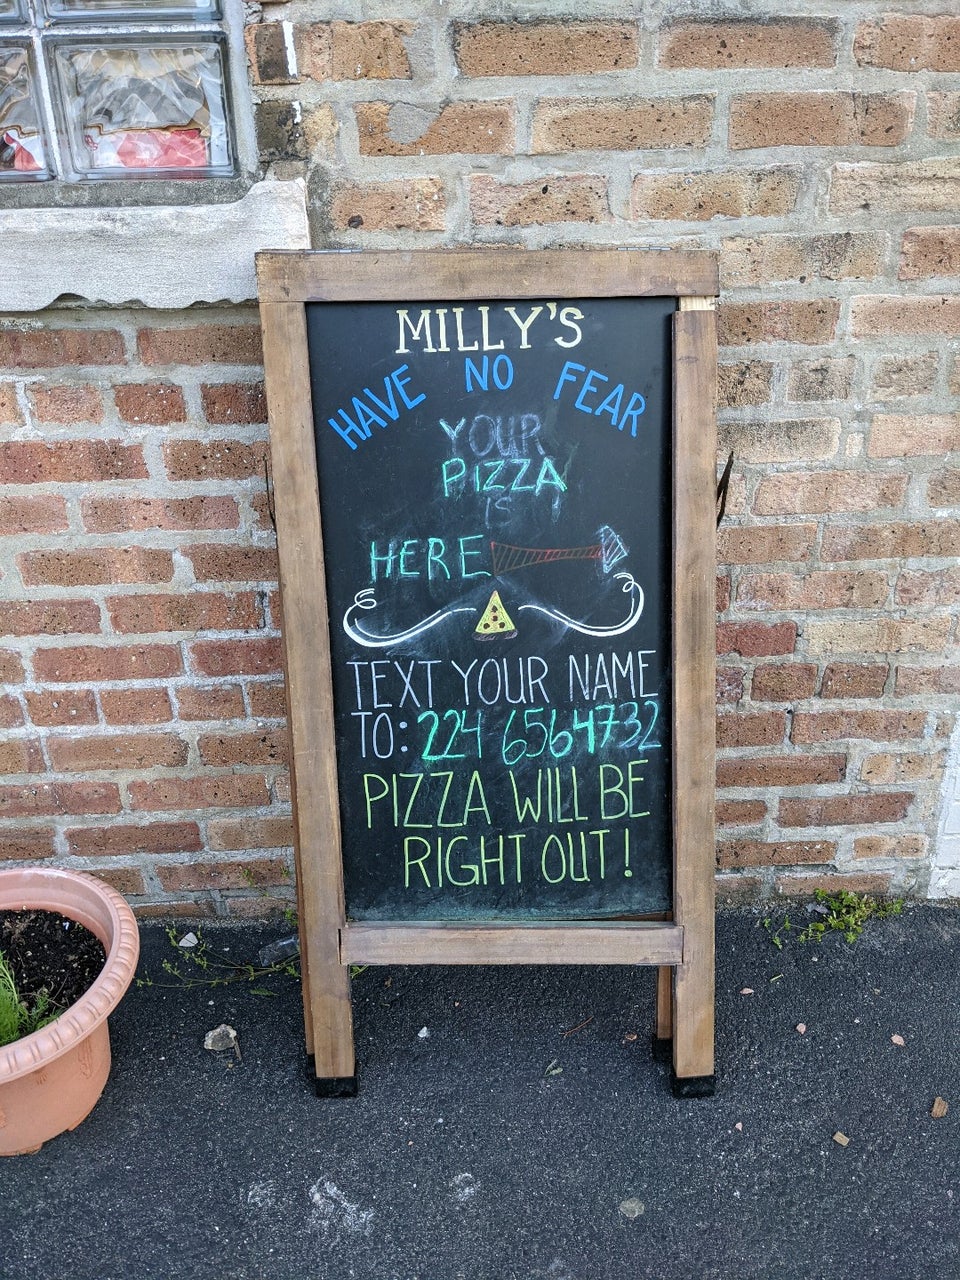 MILLY'S
HAVE NO FEAR
YOUR
PIZZA
IS
HERE
TEXT YOUR NAME
TO: 224 6564732
PIZZA WILL BE
RIGHT OUT!